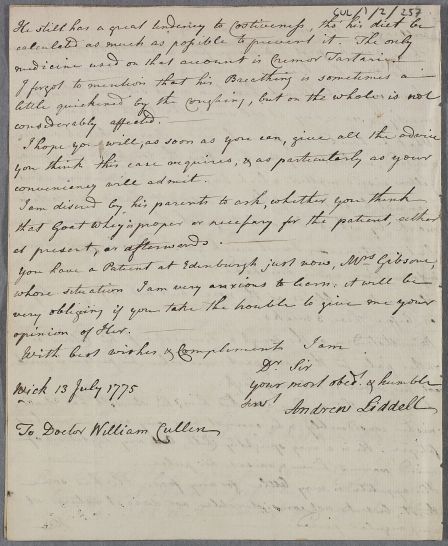 CUL/1/2/257
He still has a great tendency to Costiveness, tho' his diet be
calculated as much as possible to prevent it. The only
medicine used on that account is Cremor Tartari.
I forgot to mention that his Breathing is sometimes a
little quickened by the Coughing, but on the whole is not
considerably affected.
I hope you will, as soon as you can, give all the advice
you think this case requires, & as particularly as your
conveniency will admit.
I am desired by his parents to ask, whether you think
that Goat whey is proper or necessary for the patient, either
at present, or afterwards.
You have a Patient at Edinburgh just now, Mrs Gibsone,
whose situation I am very anxious to learn, it will be
very obliging if you take the trouble to give me your
opinion of Her.
With best wishes & Compliments I am
Dr. Sir
your most obedt. & humble
Wick 13 July 1775
servt
Andrew Liddell
To Doctor William Cullen